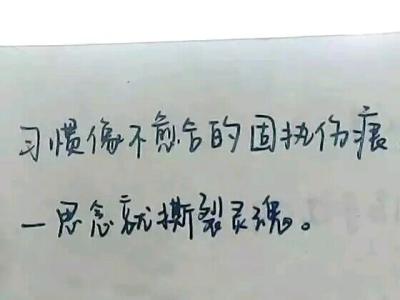 习惯像不愈合的固执伤痕
一思念就撕裂灵魂。